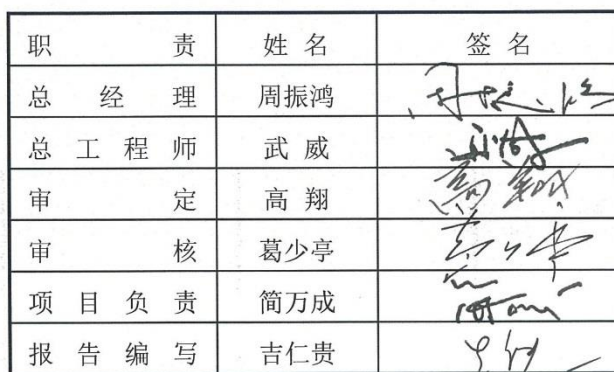 职 责 姓 名 签 名
总 经 理 周振鸿
总 工 程 师 武 威
审 定 高 翔 高翔
审 核 葛少亭
项 目 负 责 简万成
报 告 编 写 吉仁贵